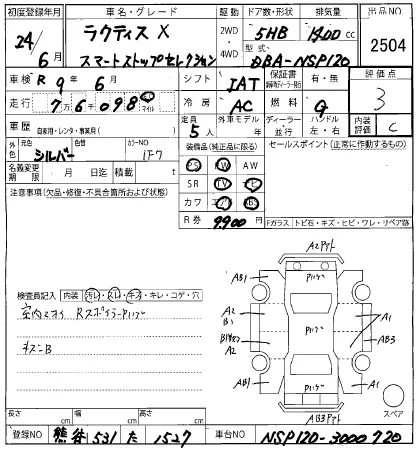 初度登録年月 車名・グレード 駆動 ドア数・形状 排気量 出品NO
24/6月 ラクティス X 2WD 4WD 5HB 1300cc 2504
スマートストップセレクション 型式 DBA-NSP120
車検 R 9年 6月 シフト IAT 保証書 有・無 評価点
走行 7万6千098 km マイル 冷房 AC 燃料 G 3
車歴 自家用・レンタ・事業用( ) 定員 5人 外車モデル 年 ディーラー・並行 ハンドル 左・右 内装評価 C
外色 元色 シルバー 色替 カラーNO 1F7 装備品(純正品に限る) セールスポイント(正常に作動するもの)
名義変更期限 月 日迄 積載 t PS PW
注意事項(欠品・修復・不具合箇所および状態) SR TV ナビ
カワ エアB ABS
R券 9900 円 Fガラス トビ石・キズ・ヒビ・ワレ・リペア跡
検査員記入 内装 汚レ・スレ・キオ・キレ・コゲ・穴
A2
AB1 P AB1
A2 B1 P A1
A2 AB3
AB1 P A1
AB3
スペア
キズニB
長さ cm 幅 cm 高さ cm
登録NO 熊谷 531 た 1527 車台NO NSP120-3000720